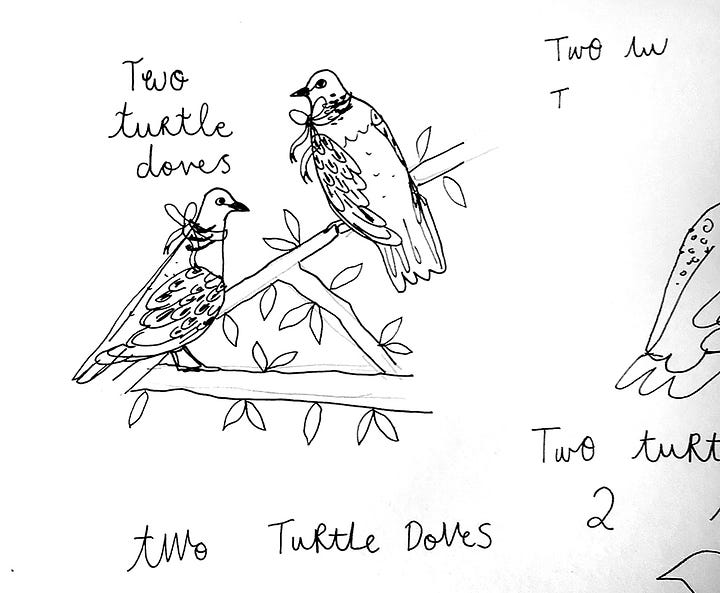 Two
turtle
doves
Two tw
T
Two turt
2
two Turtle Doves